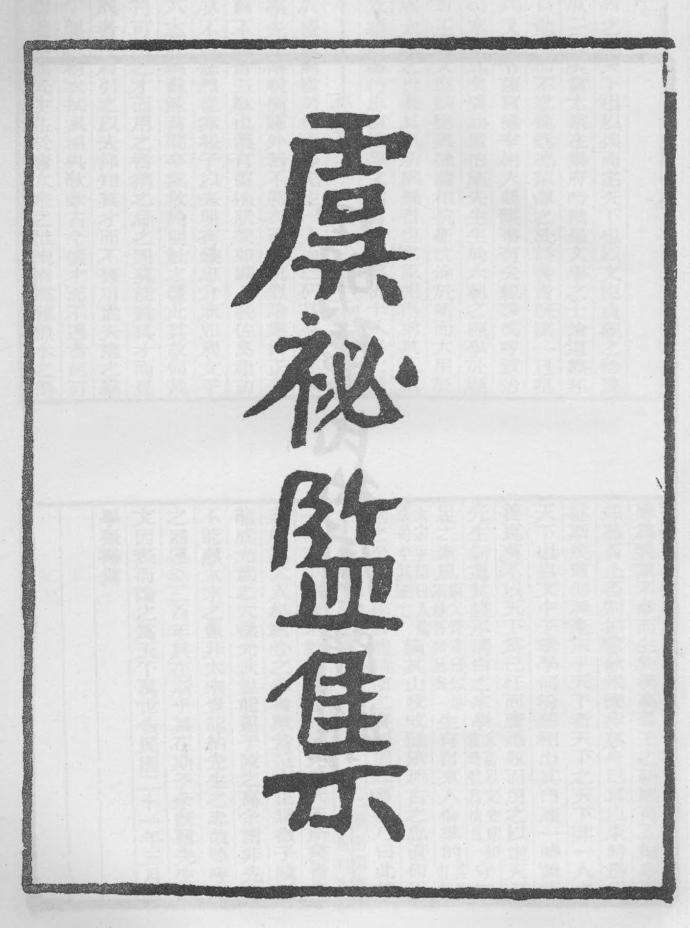 虞祕監集